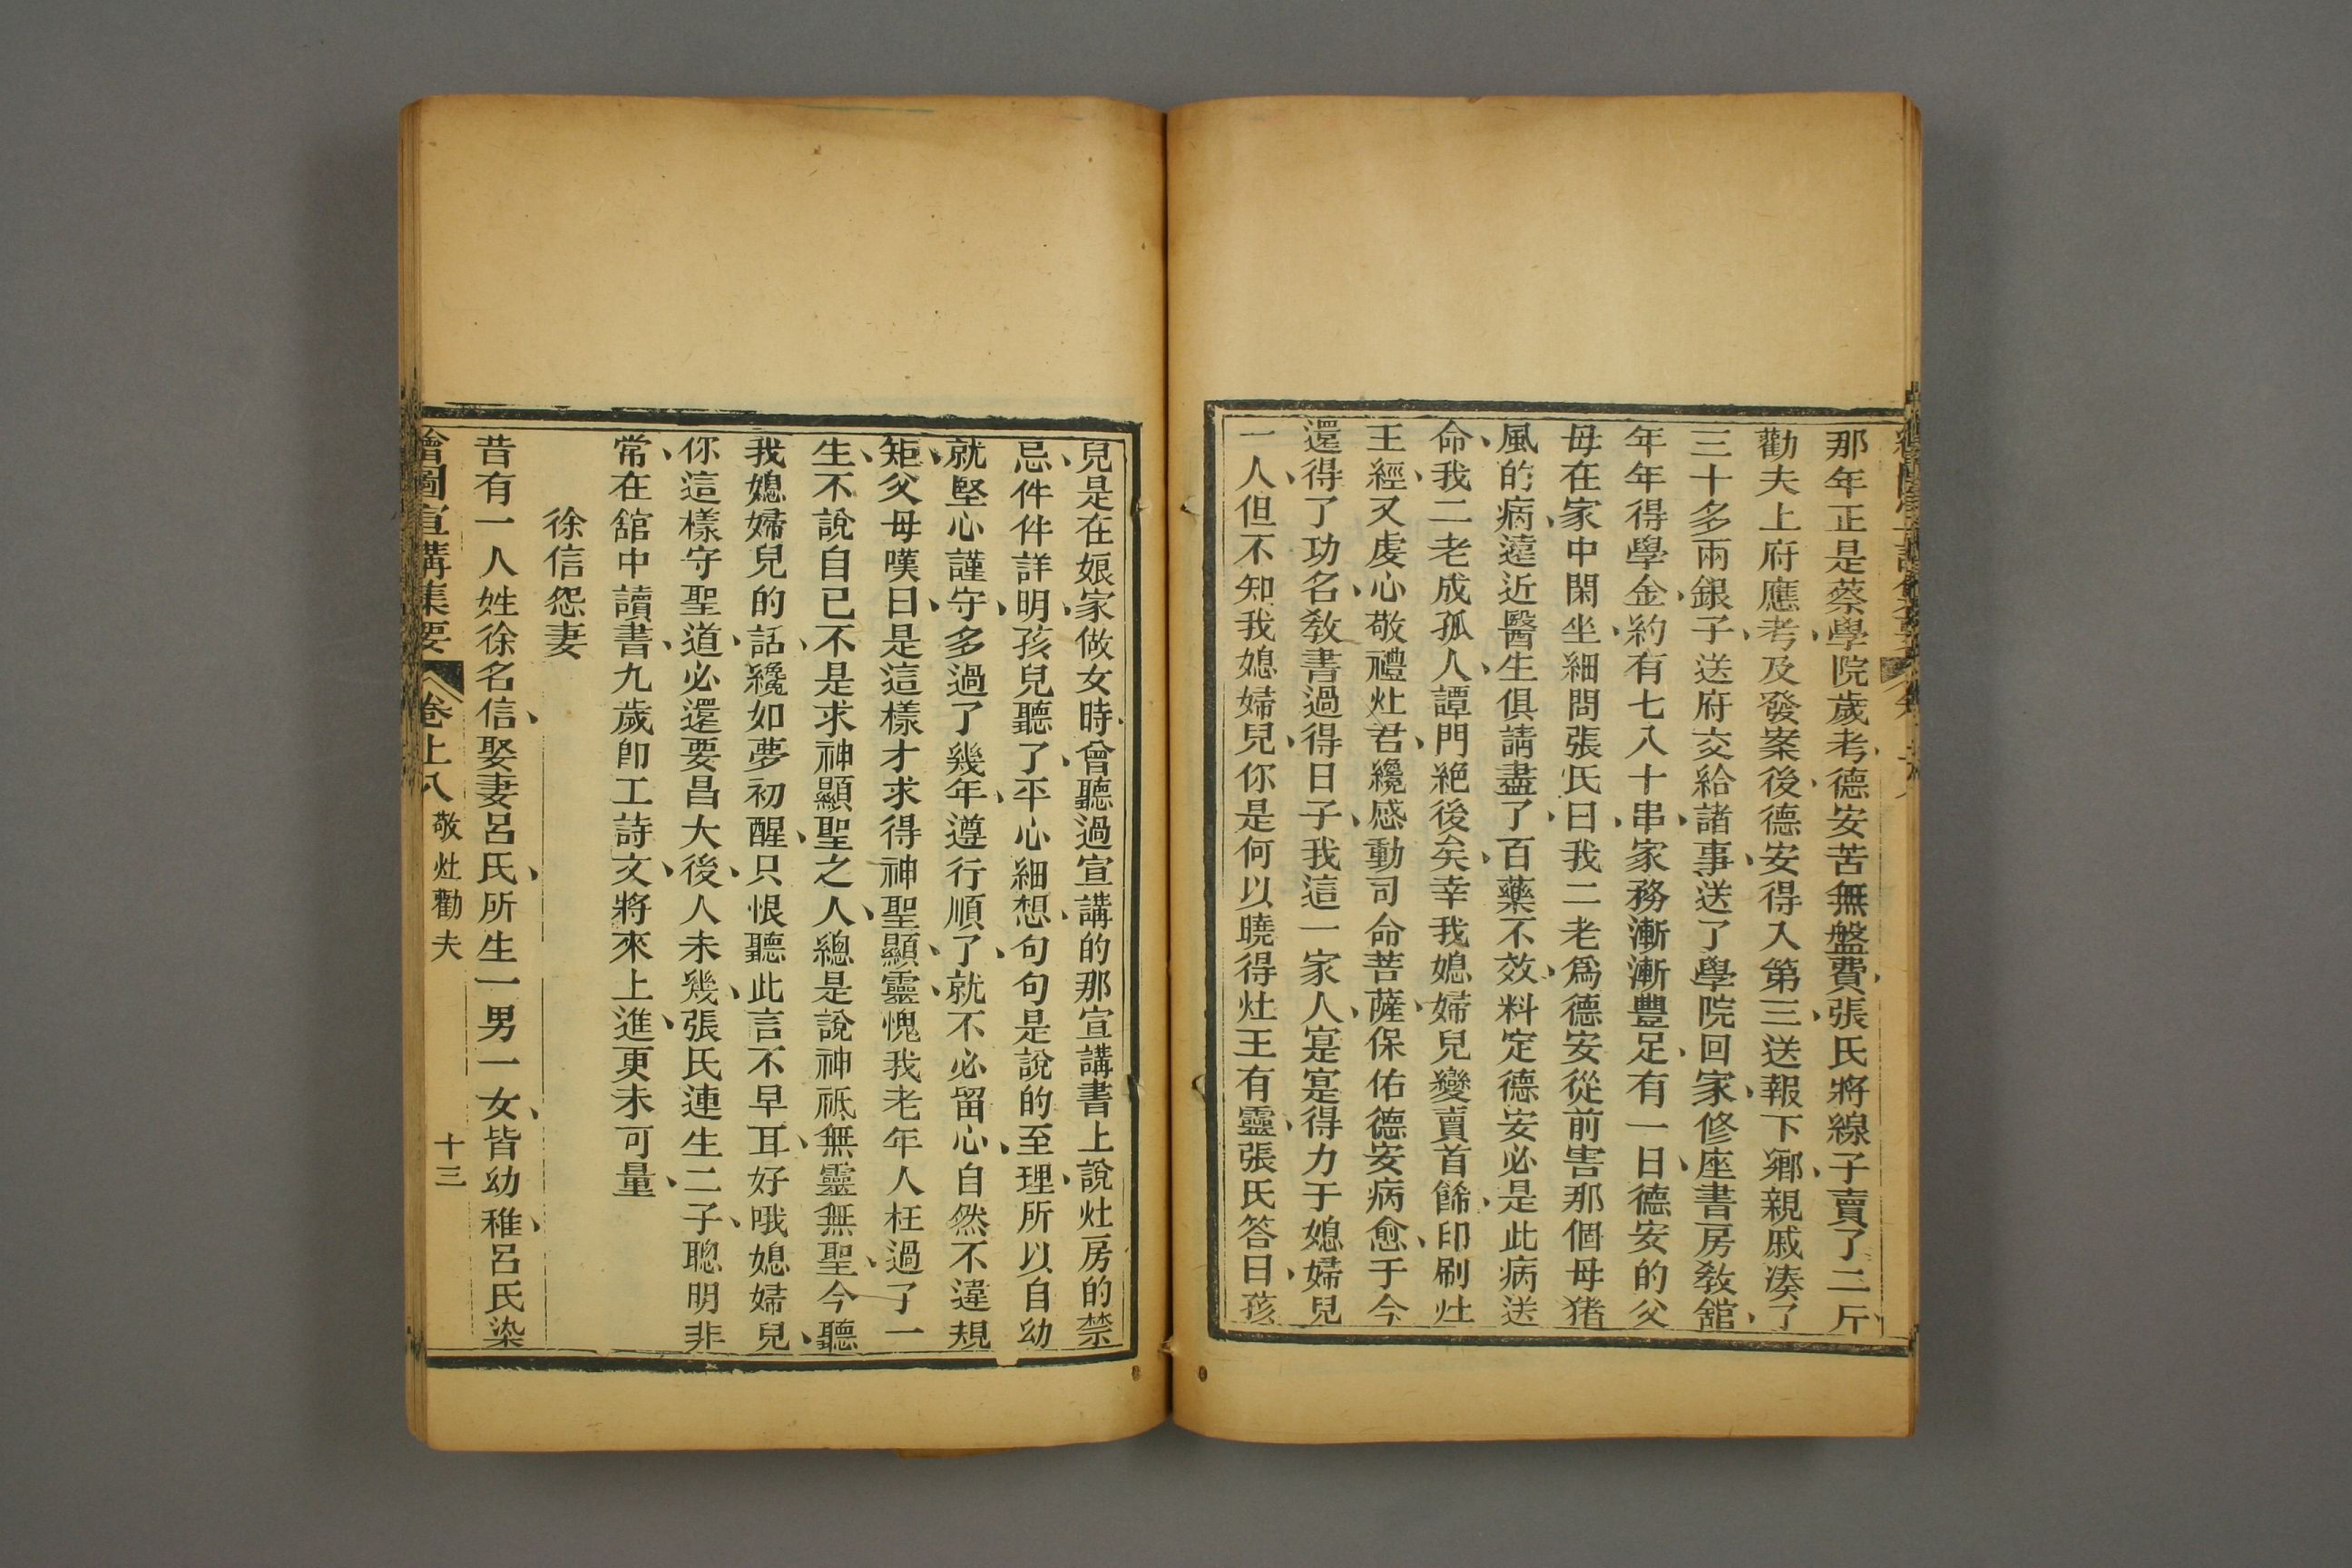 那年正是蔡學院歲考、德安苦無盤費、張氏將線子賣了二斤、
勸夫上府應考、及發案後、德安得入第三、送報下鄉、親戚湊了
三十多兩銀子、送府交給諸事、送了學院回家、修座書房教舘、
年年得學金、約有七八十串、家務漸漸豐足、有一日、德安的父
母在家中閑坐、細問張氏、曰我二老爲德安從前害那個母猪
風的病、遠近醫生俱請盡了、百藥不效、料定德安必是此病送
命、我二老成孤人、譚門絕後矣、幸我媳婦兒變賣首飾、印刷灶
王經、又虔心敬禮灶君、纔感動司命菩薩、保佑德安病愈、于今
還得了功名、教書過得日子、我這一家人、寔寔得力于媳婦兒
一人、但不知我媳婦兒、你是何以曉得灶王有靈、張氏答曰、孩
兒是在娘家做女時、曾聽過宣講的那宣講書上說灶房的禁
忌、件件詳明、孩兒聽了、平心細想、句句是說的至理、所以自幼
就堅心謹守、多過了幾年、遵行順了、就不必留心、自然不違規
矩、父母嘆曰、是這樣才求得神聖顯靈、愧我老年人枉過了一
生、不說自已不是求神顯聖之人、總是說神祇無靈無聖、今聽
我媳婦兒的話、纔如夢初醒、只恨聽此言不早耳、好哦媳婦兒、
你這樣守聖道、必還要昌大後人、未幾、張氏連生二子、聰明非
常、在舘中讀書、九歲卽工詩文、將來上進、更未可量、
徐信怨妻
昔有一人姓徐名信、娶妻呂氏、所生一男一女、皆幼稚、呂氏染
繪圖宣講集要 卷上八 敬灶勸夫 十三